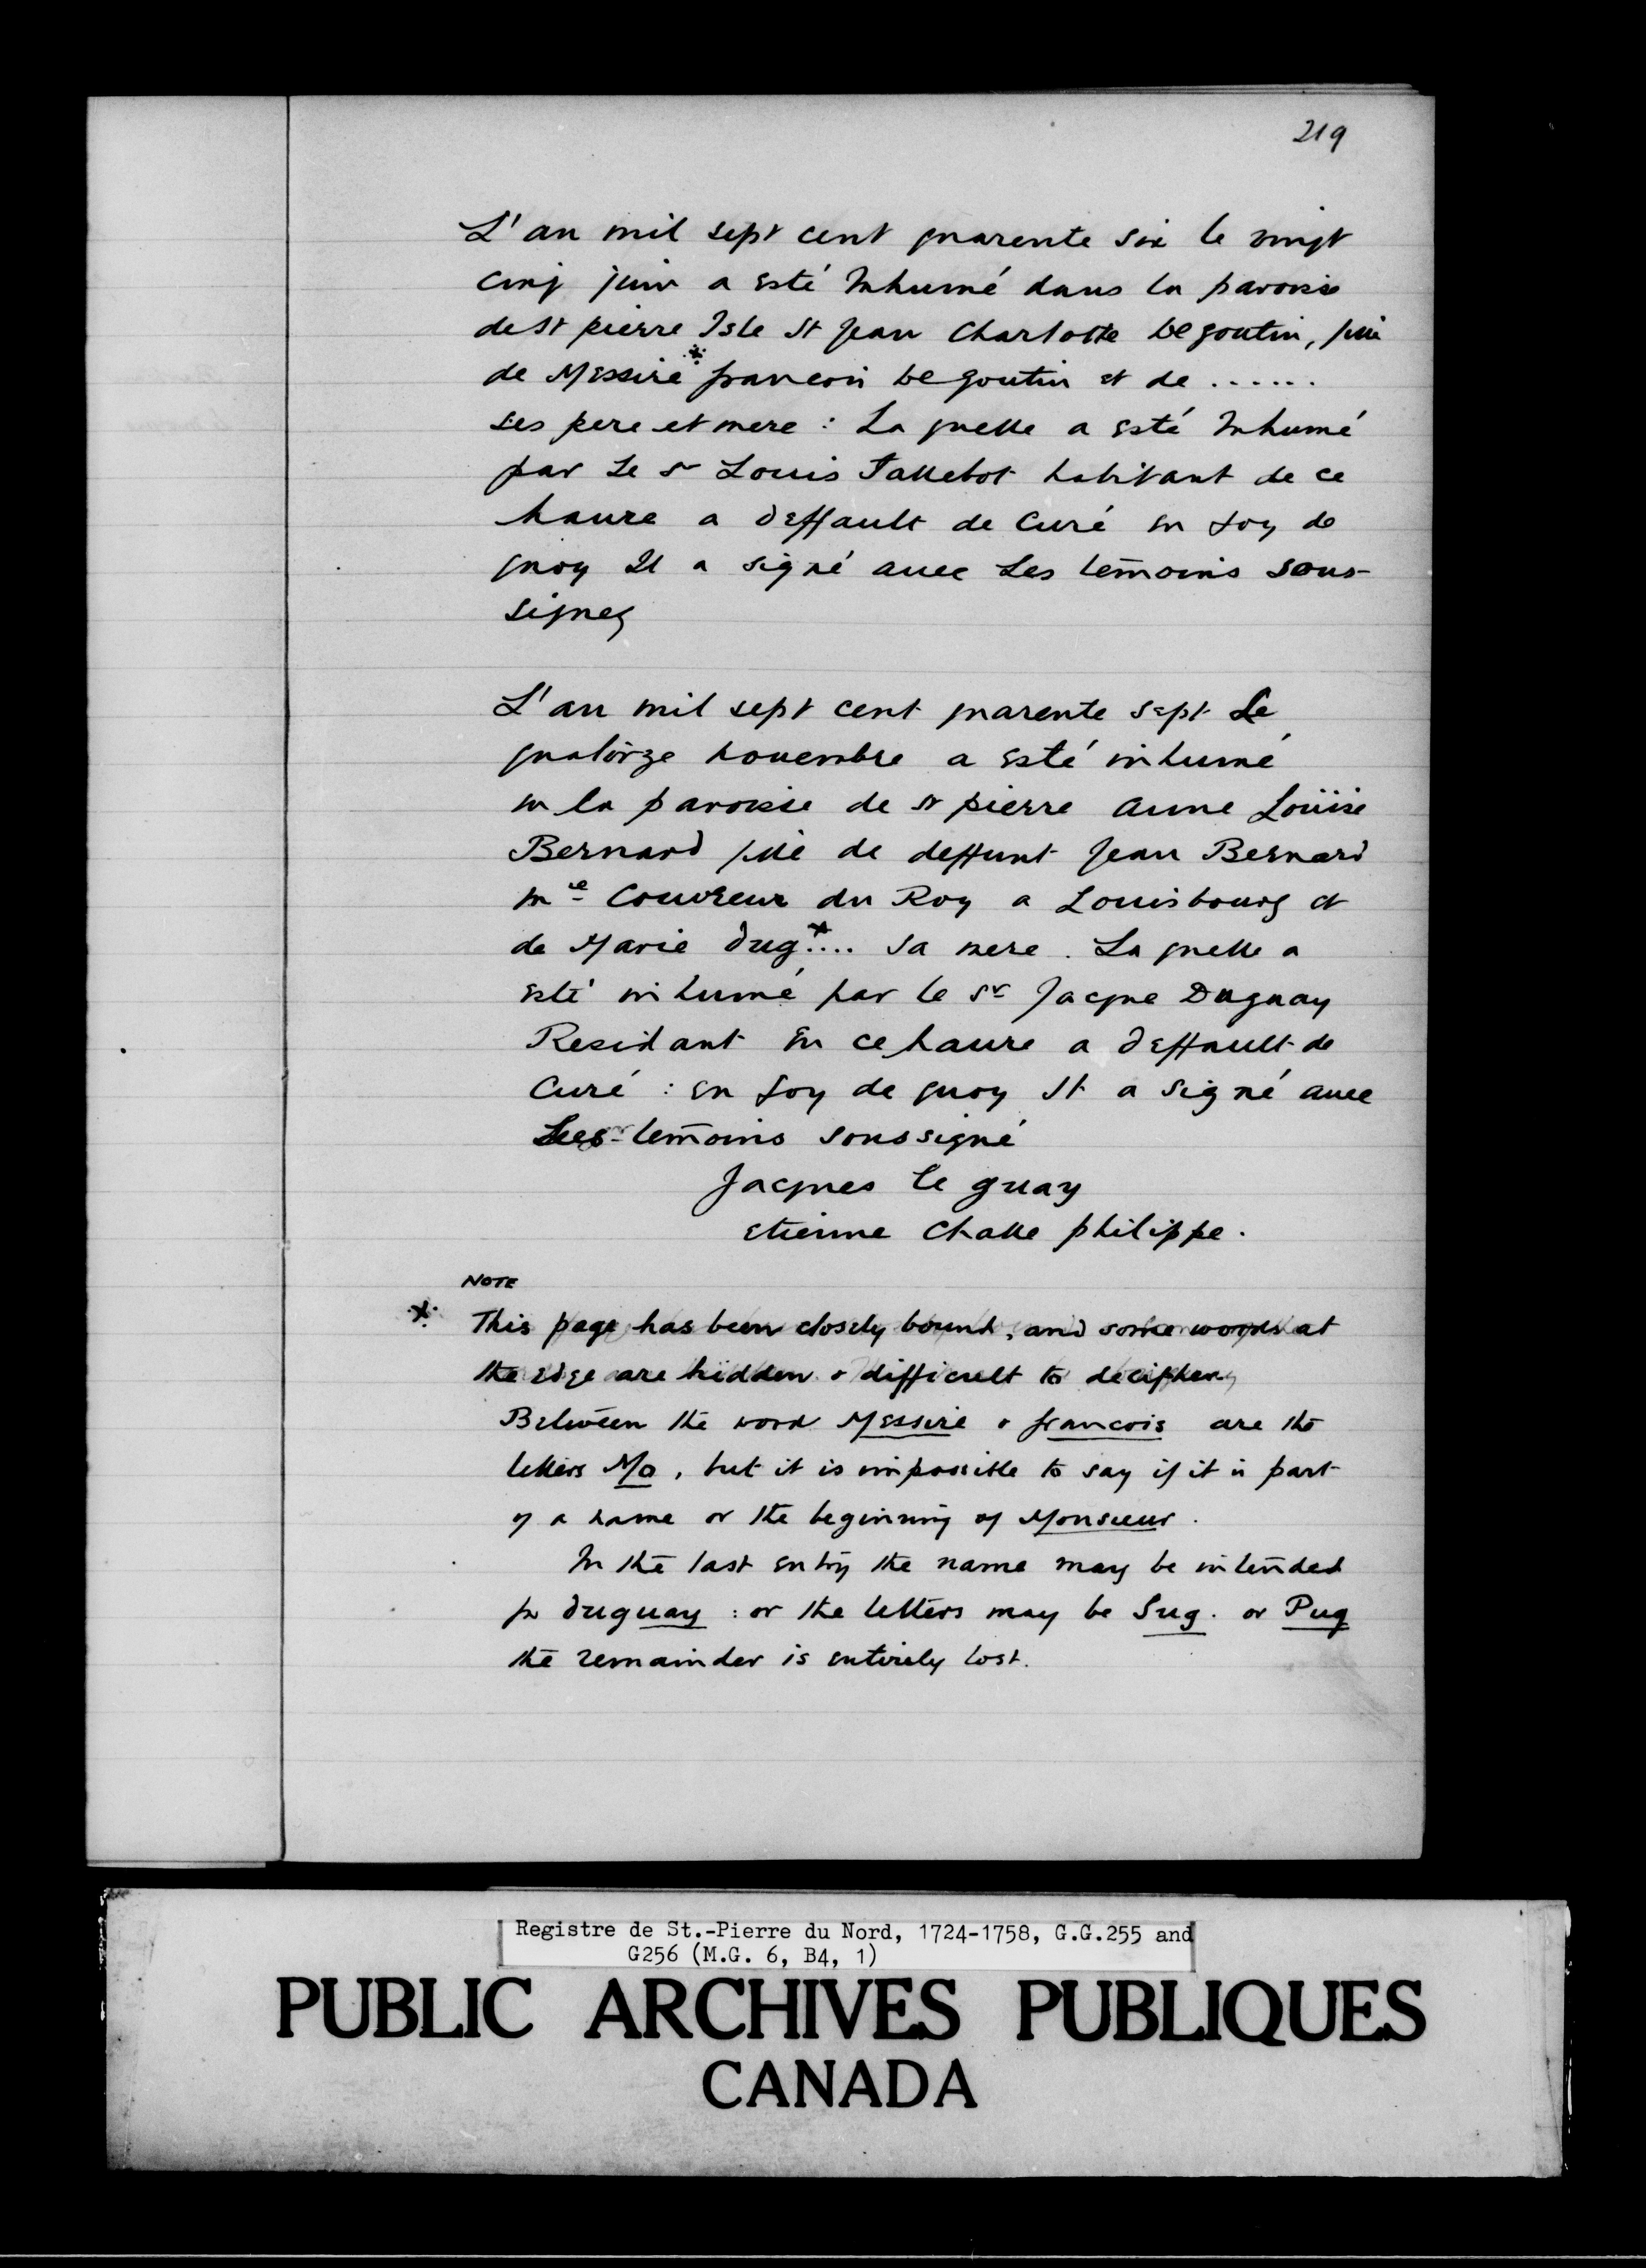 219
L'an mil sept cent quarente six le vingt
cinq juin a esté Inhumé dans la paroisse
de St pierre Isle St Jean Charlotte de goutin, fille
de Messire * francois de goutin et de ......
ses pere et mere : La quelle a esté Inhumé
par Le sr Louis Tallebot habitant de ce
haure a deffault de Curé en foy de
quoy Il a signé auec Les temoins sous-
signez
L'an mil sept cent quarente sept Le
quatorze nouembre a esté inhumé
en la paroisse de st pierre anne Loüise
Bernard fille de deffunt Jean Bernard
me Couvreur du Roy a Louisbourg et
de Marie dug*.... sa mere . La quelle a
esté inhumé par le sr Jacque Duguay
Residant en ce haure a deffault de
Curé : en foy de quoy Il a signé auec
Les temoins soussigné
Jacques le guay
etienne Challe philippe.
NOTE
* This page has been closely bound, and some words at
the edge are hidden & difficult to decipher
Between the word Messire & francois are the
letters Mo, but it is impossible to say if it is part
of a name or the beginning of Monsieur.
In the last entry the name may be intended
for duguay : or the letters may be Sug. or Pug
the remainder is entirely lost.
Registre de St.-Pierre du Nord, 1724-1758, G.G.255 and
G256 (M.G. 6, B4, 1)
PUBLIC ARCHIVES PUBLIQUES
CANADA